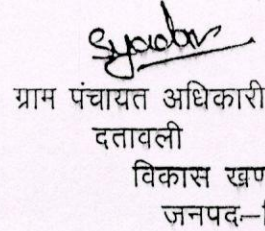 ग्राम पंचायत अधिकारी
दतावली
विकास
जनपद-